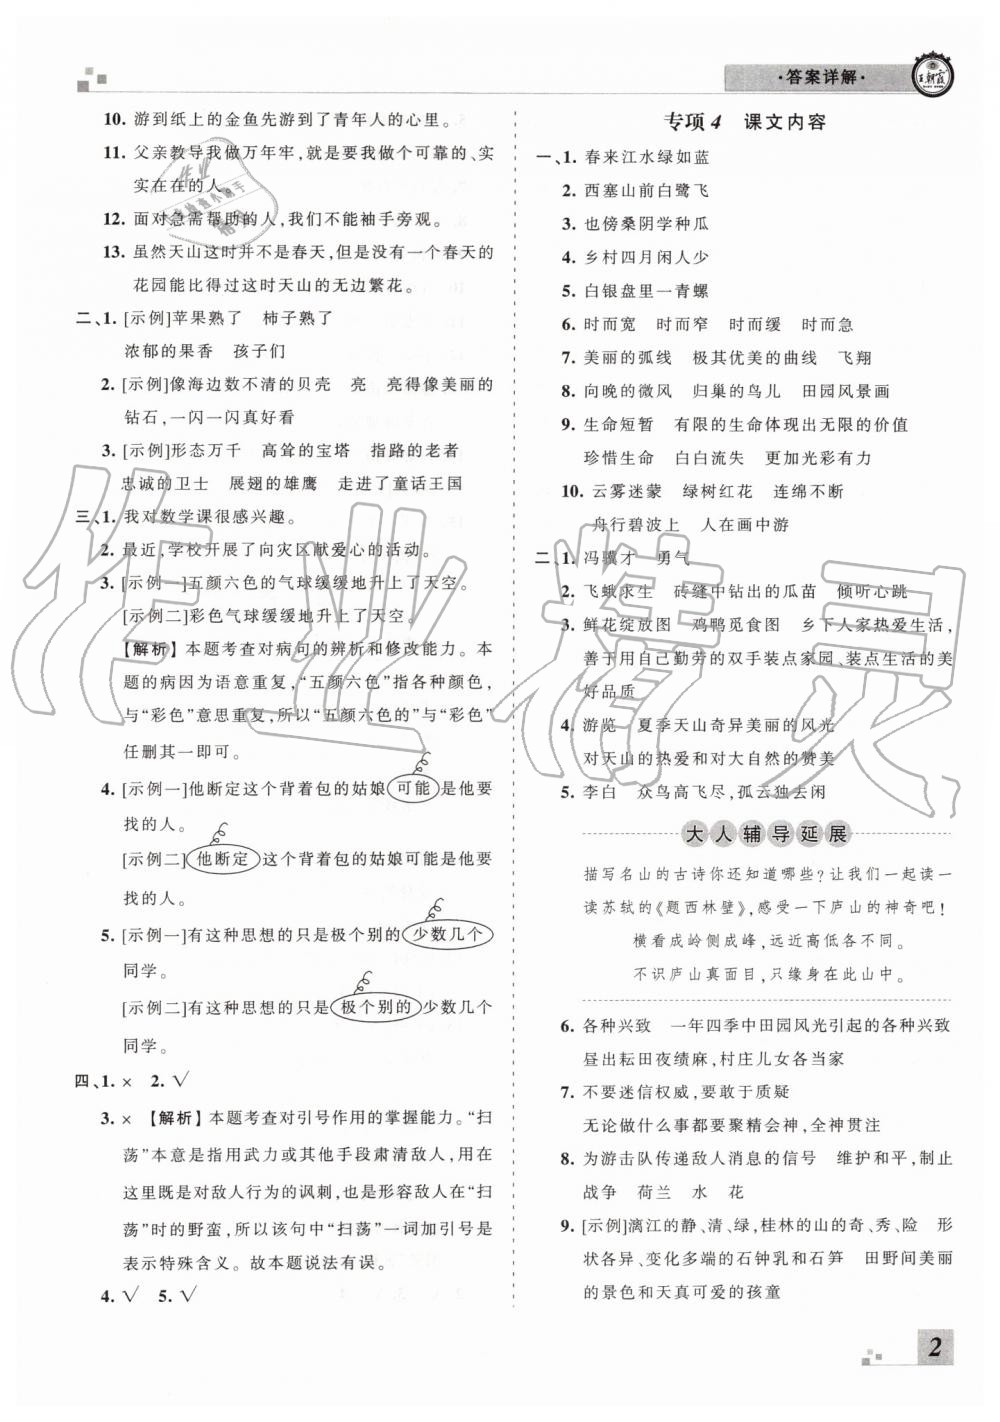 ·答案详解·
王朝霞
10. 游到纸上的金鱼先游到了青年人的心里。
11. 父亲教导我做万年牢,就是要做个可靠的、实
实在在的人。
12. 面对急需帮助的人,我们不能袖手旁观。
13. 虽然天山这时并不是春天,但是没有一个春天的
花园能比得过这时天山的无边繁花。
二、1. [示例]苹果熟了 柿子熟了
浓郁的果香 孩子们
2. [示例]像海边数不清的贝壳 亮 亮得像美丽的
钻石,一闪一闪真好看
3. [示例]形态万千 高耸的宝塔 指路的老者
忠诚的卫士 展翅的雄鹰 走进了童话王国
三、1. 我对数学课很感兴趣。
2. 最近,学校开展了向灾区献爱心的活动。
3. [示例一]五颜六色的气球缓缓地升上了天空。
[示例二]彩色气球缓缓地升上了天空。
【解析】本题考查对病句的辨析和修改能力。本
题的病因为语意重复,“五颜六色”指各种颜色,
与“彩色”意思重复,所以“五颜六色的”与“彩色”
任删其一即可。
4. [示例一]他断定这个背着包的姑娘可能是他要
找的人。
[示例二]他断定这个背着包的姑娘可能是他要
找的人。
5. [示例一]有这种思想的只是极个别的少数几个
同学。
[示例二]有这种思想的只是极个别的少数几个
同学。
四、1. × 2. √
3. × 【解析】本题考查对引号作用的掌握能力。“扫
荡”本意是指用武力或其他手段肃清敌人,用在
这里既是对敌人行为的讽刺,也是形容敌人在“扫
荡”时的野蛮,所以该句中“扫荡”一词加引号是
表示特殊含义。故本题说法有误。
4. √ 5. √
专项4 课文内容
一、1. 春来江水绿如蓝
2. 西塞山前白鹭飞
3. 也傍桑阴学种瓜
4. 乡村四月闲人少
5. 白银盘里一青螺
6. 时而宽 时而窄 时而缓 时而急
7. 美丽的弧线 极其优美的曲线 飞翔
8. 向晚的微风 归巢的鸟儿 田园风景画
9. 生命短暂 有限的生命体现出无限的价值
珍惜生命 白白流失 更加光彩有力
10. 云雾迷蒙 绿树红花 连绵不断
舟行碧波上 人在画中游
二、1. 冯骥才 勇气
2. 飞蛾求生 砖缝中钻出的瓜苗 倾听心跳
3. 鲜花绽放图 鸡鸭觅食图 乡下人家热爱生活,
善于用自己勤劳的双手装点家园、装点生活的美
好品质
4. 游览 夏季天山奇异美丽的风光
对天山的热爱和对大自然的赞美
5. 李白 众鸟高飞尽,孤云独去闲
大人辅导延展
描写名山的古诗你还知道哪些?让我们一起读一
读苏轼的《题西林壁》,感受一下庐山的神奇吧!
横看成岭侧成峰,远近高低各不同。
不识庐山真面目,只缘身在此山中。
6. 各种兴致 一年四季中田园风光引起的各种兴致
昼出耘田夜绩麻,村庄儿女各当家
7. 不要迷信权威,要敢于质疑
无论做什么事都要聚精会神,全神贯注
8. 为游击队传递敌人消息的信号 维护和平,制止
战争 荷兰 水 花
9. [示例]漓江的静、清、绿,桂林的山的奇、秀、险 形
状各异、变化多端的石钟乳和石笋 田野间美丽
的景色和天真可爱的孩童
2
作业精灵